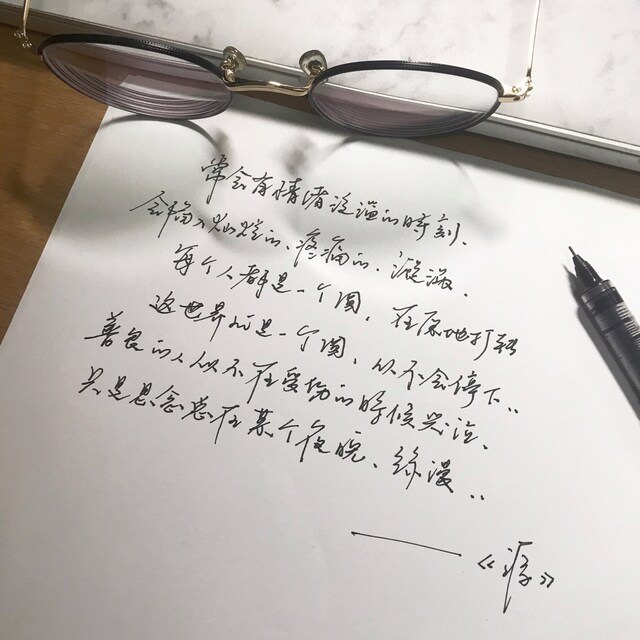 常会有情绪泛滥的時刻、
会陷入灿烂的、疼痛的、漩涡、
每个人都是一个圆，在原地打轉
这世界也是一个圆、从不会停下..
善良的人从不在受伤的时候哭泣、
只是思念总在某个夜晚、弥漫..
——《